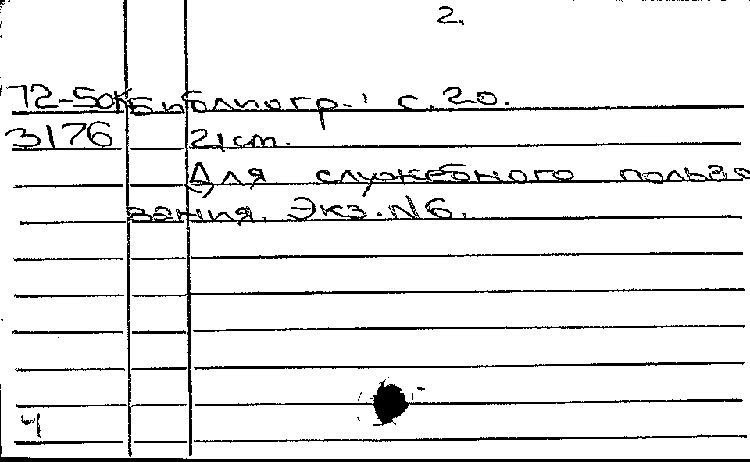 2.
72-50к Библиогр.: с.20.
3176 21cm.
Для служебного пользо
вания. Экз.N6.
4